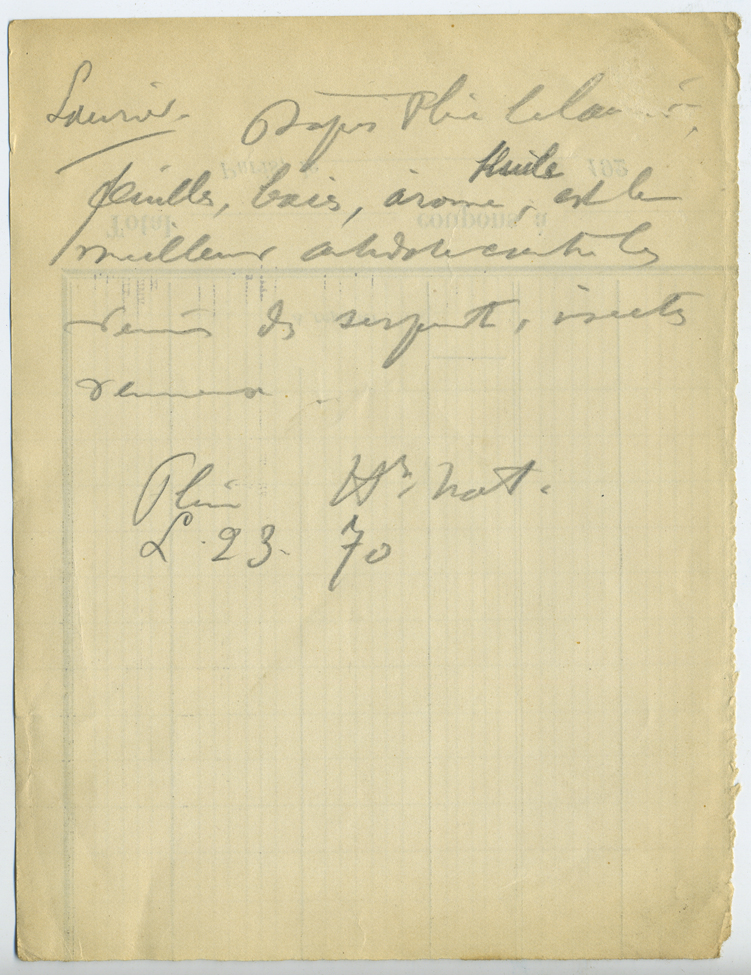 Laurier. D'après Pline le Laurier,
Huile
feuilles, baies, arome, est le
meilleur antidote contre les
venins des serpents, insectes
venimeux.
Pline Hre. Nat.
L. 23. 70